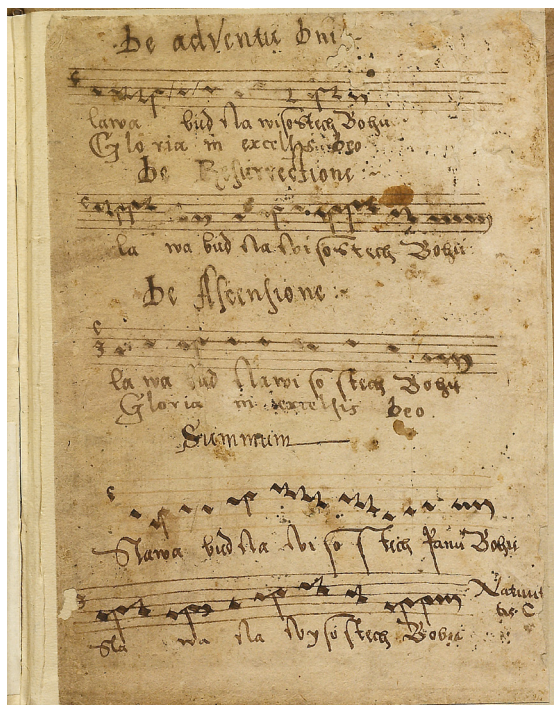 De adventu Dni
lawa bud Na wisostech Bohu
Gloria in excelsis Deo
De Resurrectione :~
la wa bud Na wi sostech Bohu
De Ascensione :~
la wa bud Na wi so stech Bohu
Gloria in excelsis Deo
Summum
Slawa bud Na wi so stech Panu Bohu
Nativi
tas C
Sla wa Na wy so stech Bohu